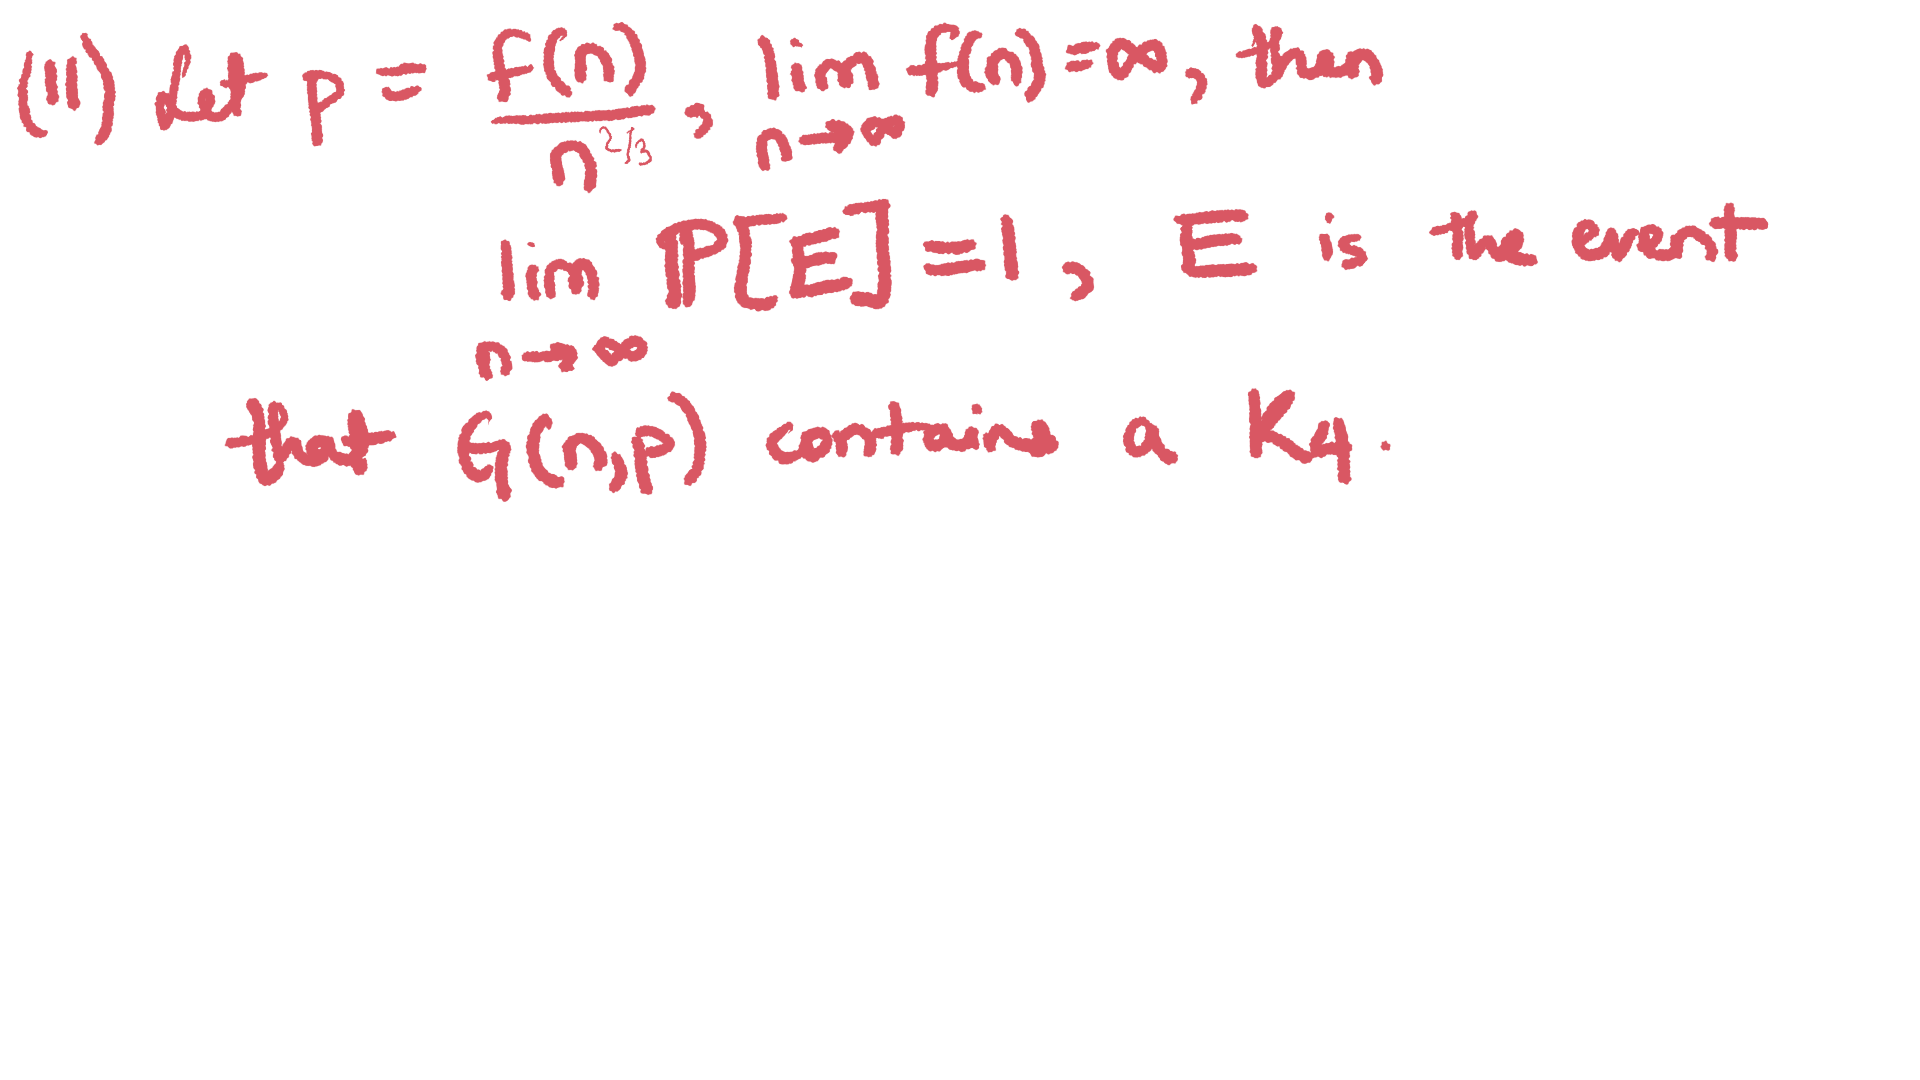 (11) Let p = f(n)/n^{2/3}, lim_{n→∞} f(n) = ∞, then
lim_{n→∞} ℙ[E] = 1, E is the event
that G(n,p) contains a K_4.